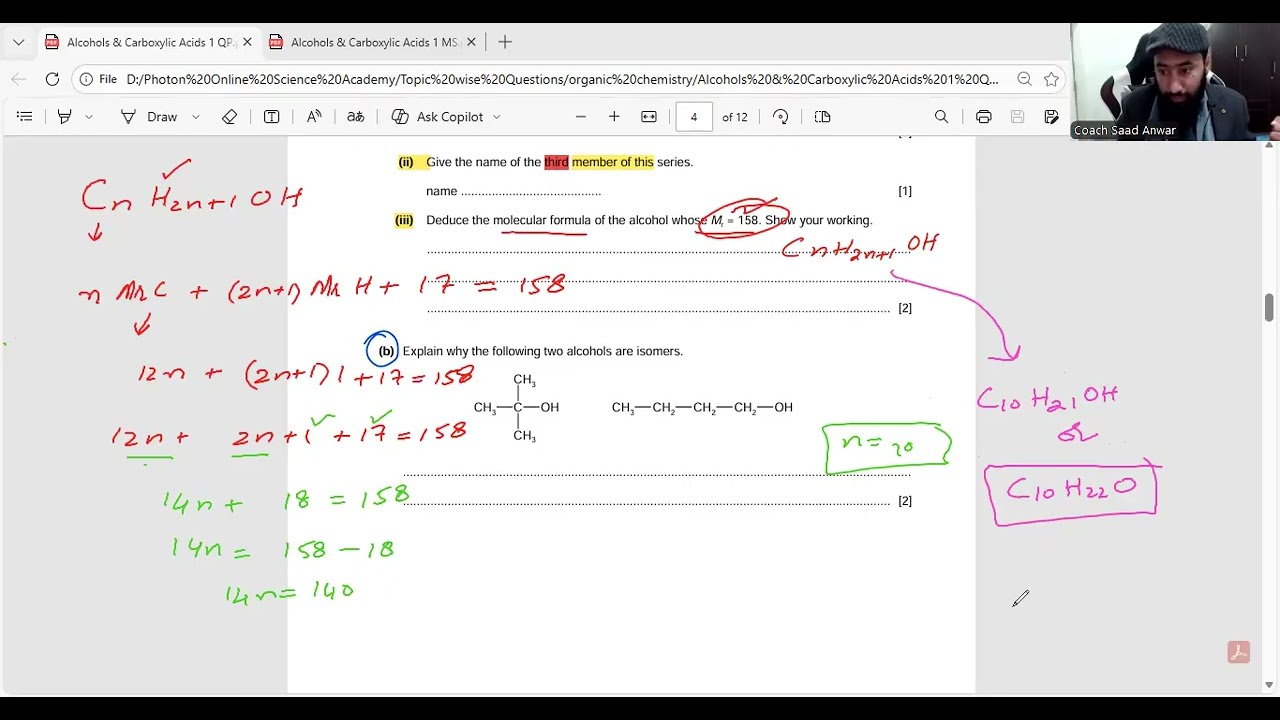 Alcohols & Carboxylic Acids 1 QP.
Alcohols & Carboxylic Acids 1 MS
File D:/Photon%20Online%20Science%20Academy/Topic%20wise%20Questions/organic%20chemistry/Alcohols%20&%20Carboxylic%20Acids%201%20Q...
Draw
aあ
Ask Copilot
4 of 12
Coach Saad Anwar
(ii) Give the name of the third member of this series.
name .................................. [1]
(iii) Deduce the molecular formula of the alcohol whose Mr = 158. Show your working.
[2]
CnH2n+1OH
CnH2n+1OH
n Mr C + (2n+1) Mr H + 17 = 158
(b) Explain why the following two alcohols are isomers.
12n + (2n+1)1 + 17 = 158
CH3
CH3—C—OH CH3—CH2—CH2—CH2—OH
CH3
12n + 2n+1 + 17 = 158
n = 10
[2]
14n + 18 = 158
14n = 158 – 18
14n = 140
C10H21OH
or
C10H22O